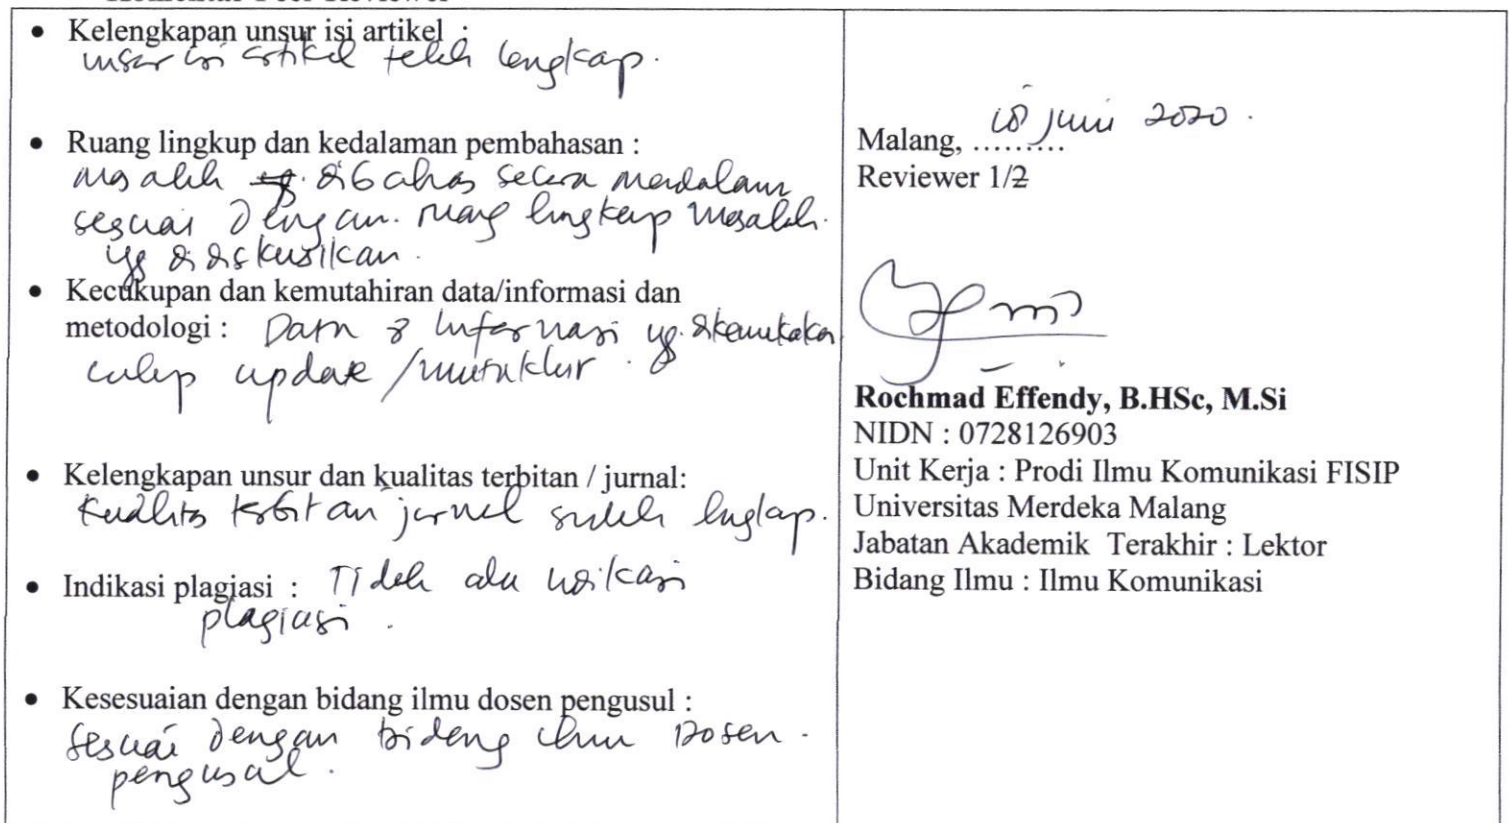 • Kelengkapan unsur isi artikel :
unsur isi artikel telah lengkap.
• Ruang lingkup dan kedalaman pembahasan :
masalah yg. dibahas secara mendalam
sesuai dengan. ruang lingkup masalah.
yg didiskusikan.
• Kecukupan dan kemutahiran data/informasi dan
metodologi : Data & Informasi yg. dikemukakan
cukup update /mutakhir.
• Kelengkapan unsur dan kualitas terbitan / jurnal:
Kualitas terbitan jurnal sudah lengkap.
• Indikasi plagiasi : Tidak ada indikasi
plagiasi.
• Kesesuaian dengan bidang ilmu dosen pengusul :
Sesuai dengan bidang ilmu Dosen.
pengusul.
Malang, ......... 18 Juni 2020.
Reviewer 1/2
Rochmad Effendy, B.HSc, M.Si
NIDN : 0728126903
Unit Kerja : Prodi Ilmu Komunikasi FISIP
Universitas Merdeka Malang
Jabatan Akademik Terakhir : Lektor
Bidang Ilmu : Ilmu Komunikasi